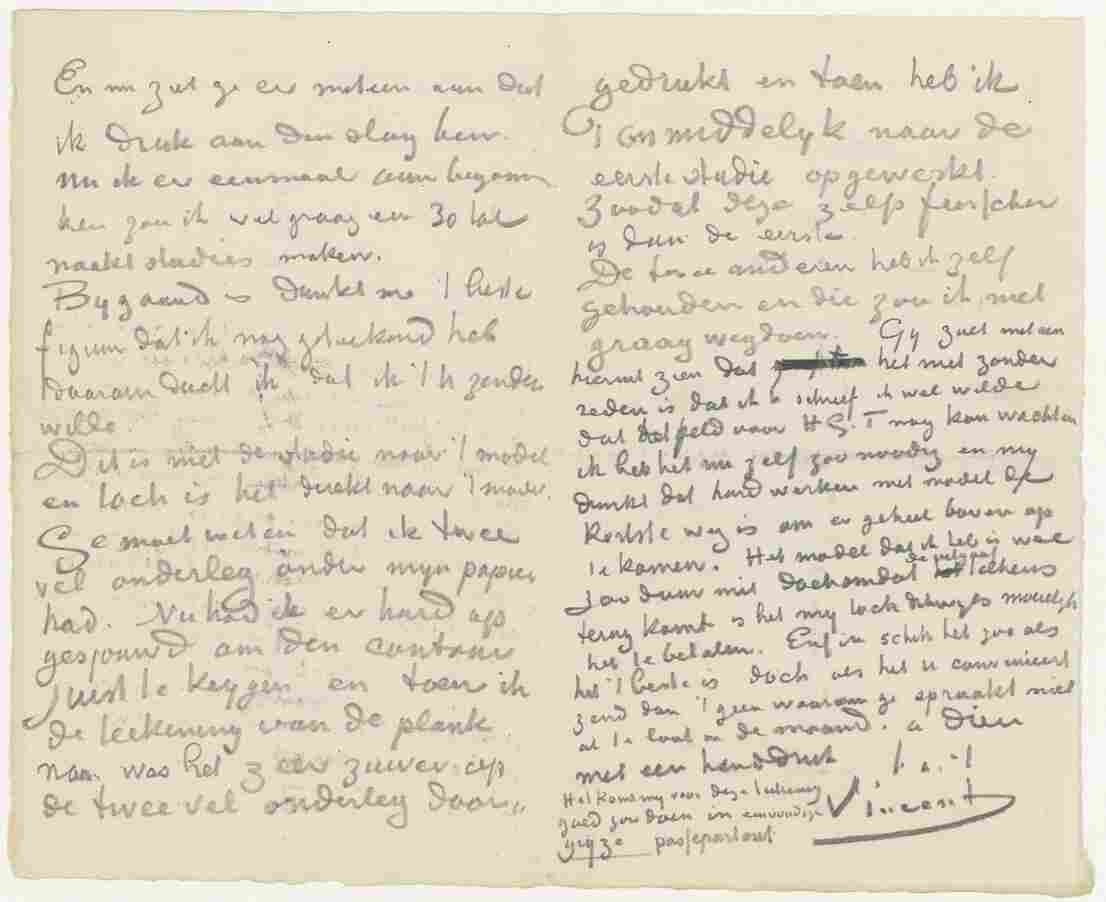 En nu ziet ge er meteen aan dat
ik druk aan den slag ben.
Nu ik er eenmaal aan begonnen
ben zou ik wel graag een 30 tal
naaktstudies maken.
Bijgaand is dunkt me 't beste
figuur dat ik nog geteekend heb
daarom dacht ik dat ik 't U zenden
wilde.
Dit is niet de studie naar 't model
en toch is het direkt naar 't model.
Ge moet weten dat ik twee
vel onderleg onder mijn papier
had. Nu had ik er hard op
gesjouwd om den contour
juist te krijgen en toen ik
de teekening van de plank
nam was het zeer zuiver op
de twee vel onderleg door„
gedrukt en toen heb ik
't onmiddelijk naar de
eerste studie opgewerkt.
Zoodat deze zelfs frisscher
is dan de eerste.
De twee anderen heb ik zelf
gehouden en die zou ik niet
graag wegdoen. Gij ziet meteen
hieruit dat het niet zonder
reden is dat ik U schreef ik wel wilde
dat geld voor H.G.T nog kon wachten
ik heb het nu zelf zoo noodig en mij
dunkt dat hard werken met model de
kortste weg is om er geheel boven op
te komen. Het model dat ik heb is wel
zoo duur niet doch omdat de uitgaaf telkens
terug komt is het mij toch dikwijls moeielijk
het te betalen. Enfin schik het zoo als
het 't beste is doch als het U convenieert
zend dan 't geen waarvan ge spraakt niet
al te laat in de maand. à Dieu
met een handdruk t. à t.
Vincent
Het komt mij voor deze teekening
goed zou doen in eenvoudige
grijze passepartout